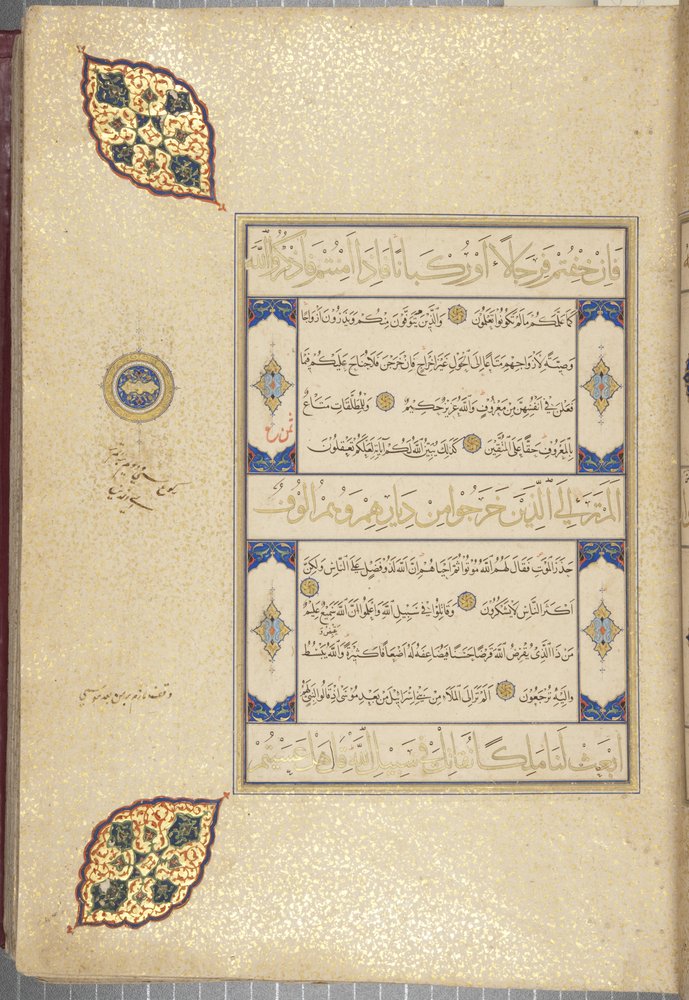 فَاِنْ خِفْتُمْ فَرِجَالًا اَوْ رُكْبَانًا فَاِذَا اَمِنْتُمْ فَاذْكُرُوا اللّٰهَ
كَمَا عَلَّمَكُمْ مَا لَمْ تَكُونُوا تَعْلَمُونَ وَالَّذِينَ يُتَوَفَّوْنَ مِنْكُمْ وَيَذَرُونَ اَزْوَاجًا
وَصِيَّةً لِاَزْوَاجِهِمْ مَتَاعًا اِلَى الْحَوْلِ غَيْرَ اِخْرَاجٍ فَاِنْ خَرَجْنَ فَلَا جُنَاحَ عَلَيْكُمْ فِيمَا
فَعَلْنَ فِي اَنْفُسِهِنَّ مِنْ مَعْرُوفٍ وَاللّٰهُ عَزِيزٌ حَكِيمٌ وَلِلْمُطَلَّقَاتِ مَتَاعٌ
بِالْمَعْرُوفِ حَقًّا عَلَى الْمُتَّقِينَ كَذٰلِكَ يُبَيِّنُ اللّٰهُ لَكُمْ اٰيَاتِهِ لَعَلَّكُمْ تَعْقِلُونَ
اَلَمْ تَرَ اِلَى الَّذِينَ خَرَجُوا مِنْ دِيَارِهِمْ وَهُمْ اُلُوفٌ
حَذَرَ الْمَوْتِ فَقَالَ لَهُمُ اللّٰهُ مُوتُوا ثُمَّ اَحْيَاهُمْ اِنَّ اللّٰهَ لَذُو فَضْلٍ عَلَى النَّاسِ وَلٰكِنَّ
اَكْثَرَ النَّاسِ لَا يَشْكُرُونَ وَقَاتِلُوا فِي سَبِيلِ اللّٰهِ وَاعْلَمُوا اَنَّ اللّٰهَ سَمِيعٌ عَلِيمٌ
مَنْ ذَا الَّذِي يُقْرِضُ اللّٰهَ قَرْضًا حَسَنًا فَيُضَاعِفَهُ لَهُ اَضْعَافًا كَثِيرَةً وَاللّٰهُ يَقْبِضُ وَيَبْسُطُ
وَاِلَيْهِ تُرْجَعُونَ اَلَمْ تَرَ اِلَى الْمَلَاِ مِنْ بَنِي اِسْرَائِيلَ مِنْ بَعْدِ مُوسٰى اِذْ قَالُوا لِنَبِيٍّ لَهُمُ
ابْعَثْ لَنَا مَلِكًا نُقَاتِلْ فِي سَبِيلِ اللّٰهِ قَالَ هَلْ عَسَيْتُمْ